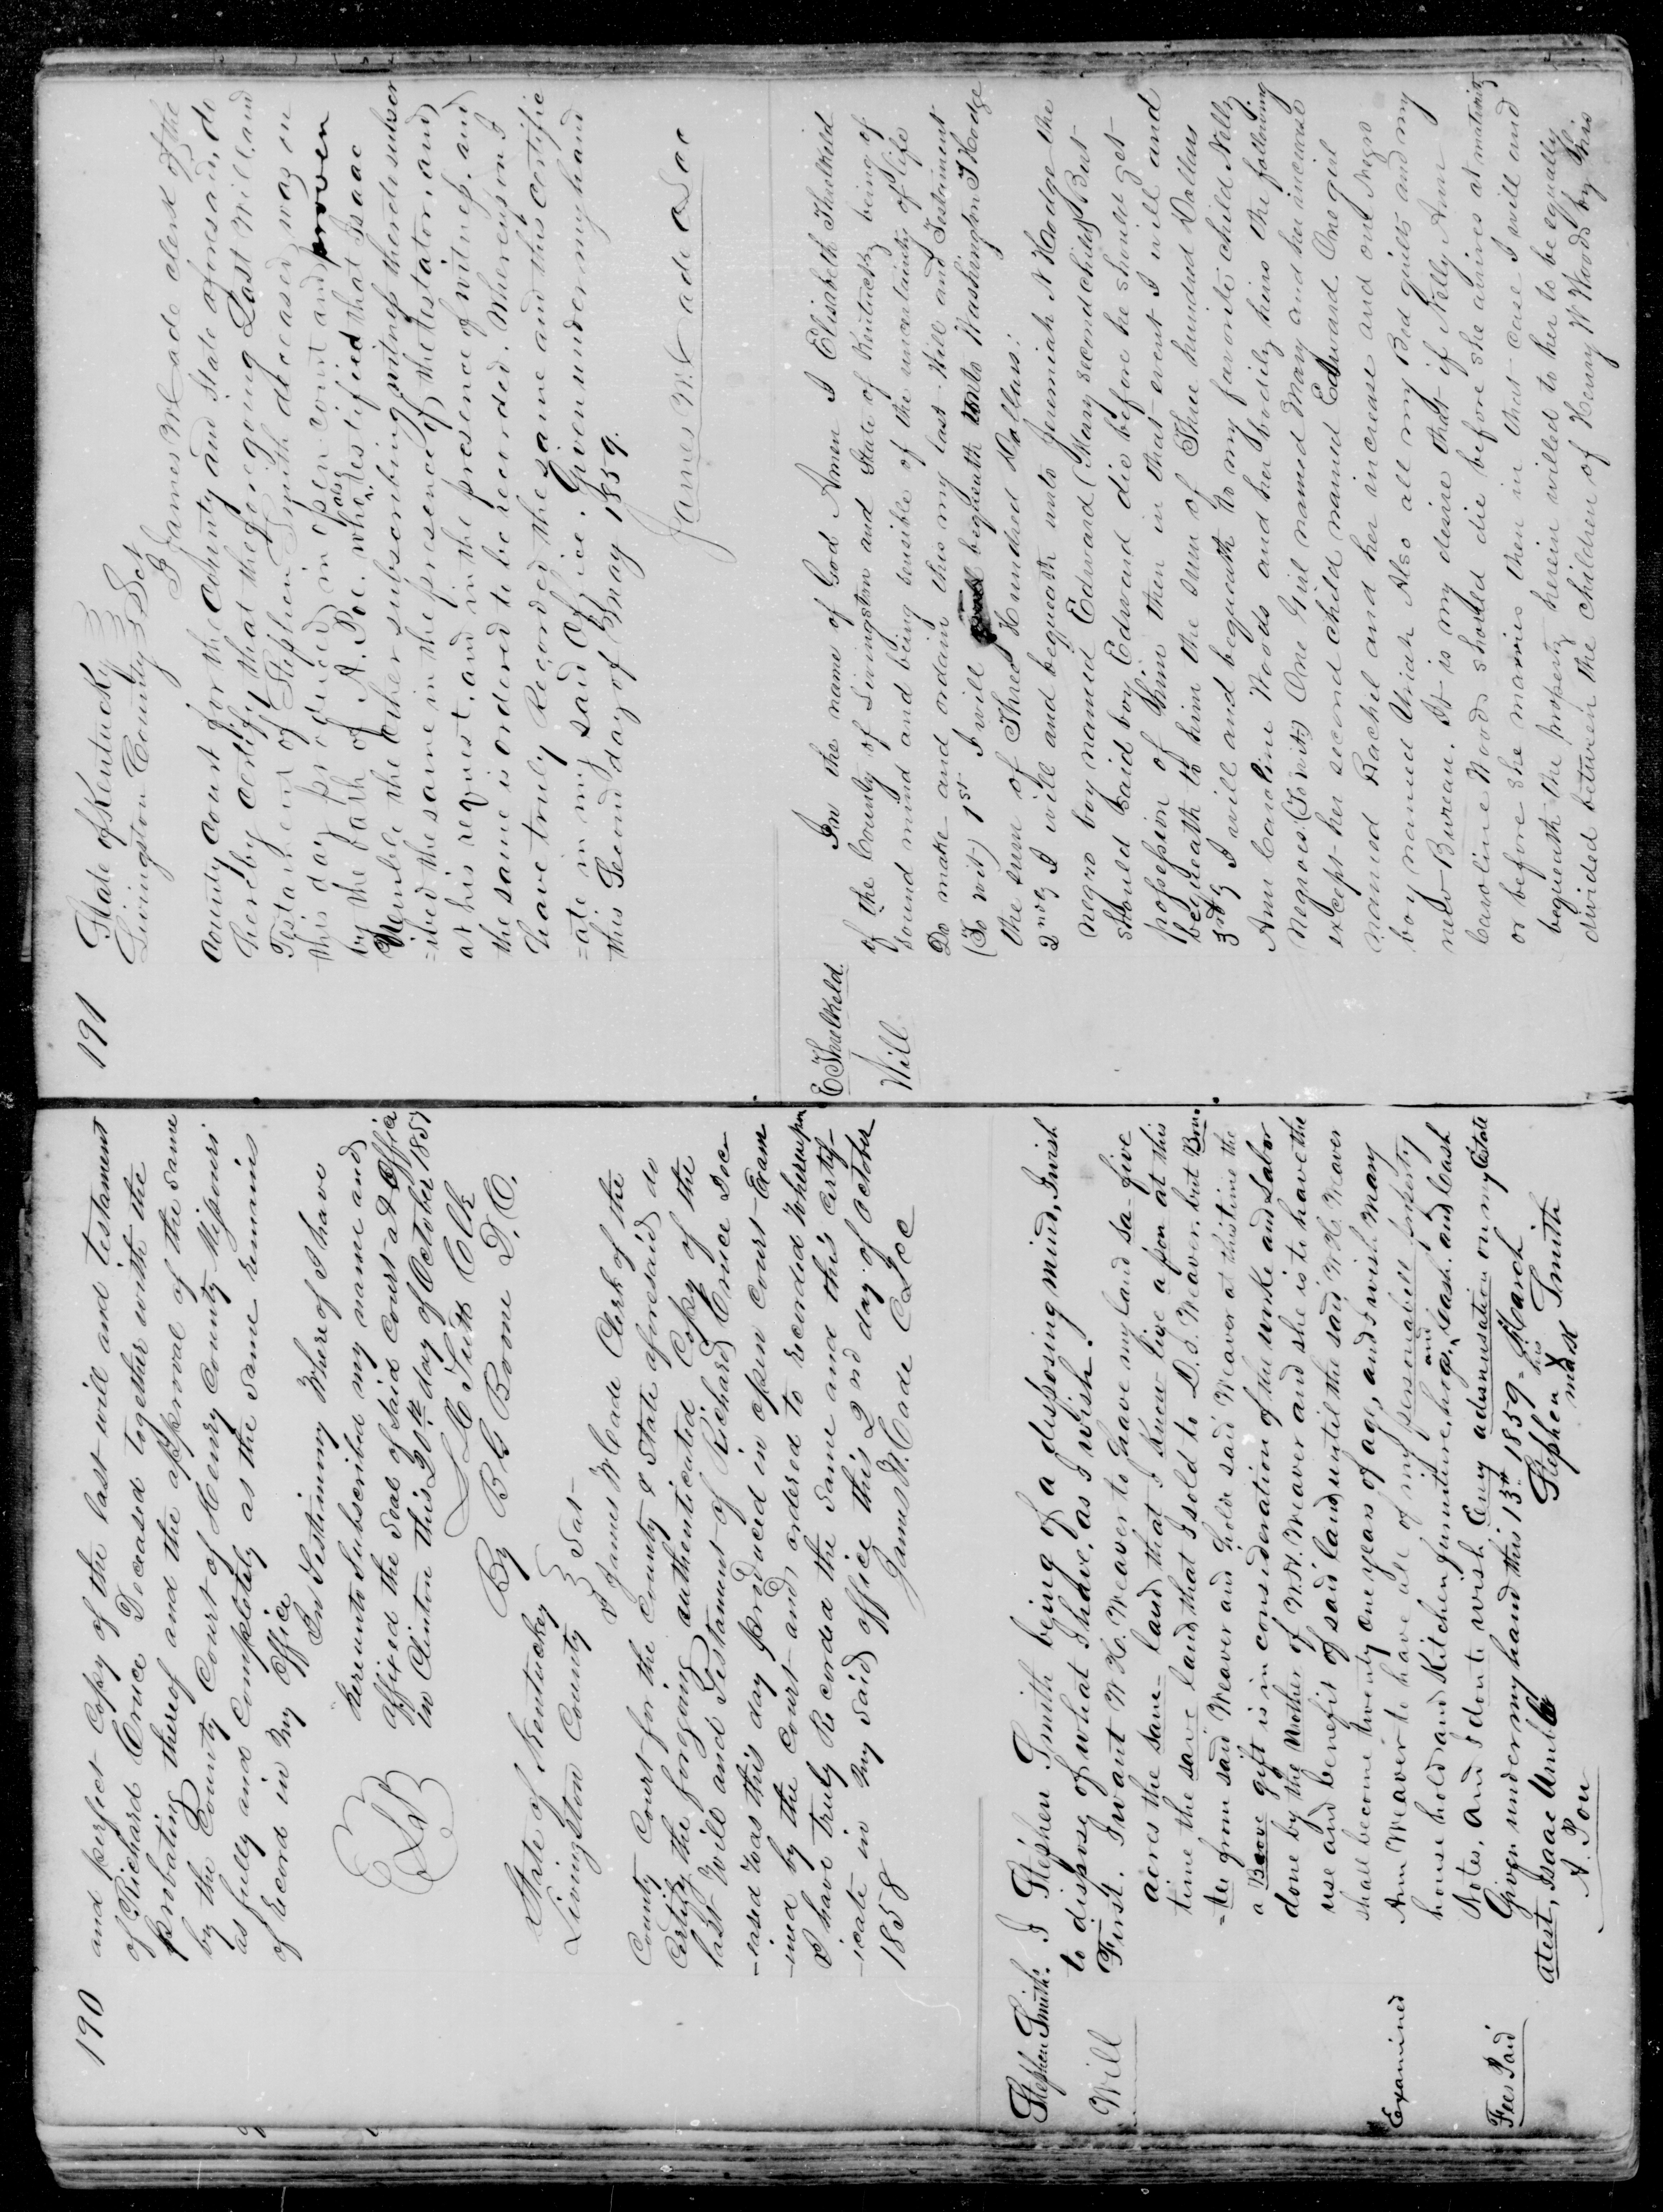 190
and perfect Copy of the last will and testament
of Richard Cruce Deceased together with the
probating thereof and the approval of the same
by the County Court of Henry County Missouri
as fully and Completely as the same remains
of record in my office
In Testimony Whereof I have
hereunto Subscribed my name and
affixed the Seal of said Court at office
in Clinton this 20th day of October 1857
Clk
By B G Boone D.C.
State of Kentucky
Livingston County Sct
I James McCade Clerk of the
County Court for the County & State aforesaid do
Certify the foregoing authenticated Copy of the
last Will and Testament of Richard Cruce Dec
-eased was this day produced in open Court Exam
-ined by the Court and ordered to recorded Whereupon
I have truly Recorded the same and this certif-
-icate in my said office this 2nd day of October
1858
James McCade C L C C
Stephen Smiths
Will
I Stephen Smith being of a disposing mind, I wish
to dispose of what I have, as I wish.
First. I want W H. Weaver to have my land sa- five
acres the same land that I know live apon at this
time the same land that I sold to D. S. Weaver. but Bou
=ter from said Weaver and holde said Weaver at this time the
a Bove gift is in consideration of the worke and Labor
done by the Mother of W. H. Weaver and she is to have the
use and benefit of said land until the said W H. Weaver
shall become twenty one years of age, and I wish Mary
Ann Weaver to have all of my personabell property
house hold and Kitchen furniture, hogs, and Cash. and Cash
Notes. and I dont wish Eny adminustation on my Estate
Given under my hand this 13th 1859 = March
atest, Isaac Umble
A. Pou
Stephen his X mark Smith
Examined
Fees Paid
191
State of Kentucky
Livingston County Sct
I James McCade clerk of the
county court for the county and State aforesaid, do
hereby certify that the foregoing Last Will and
Testament of Stephen Smith deceased was on
this day produced in open court and proven
by the oath of A. Poe. who also testified that Isaac
Umble the other subscribing witness there to subscr
=ibed the same in the presence of the testator, and
at his request, and in the presence of witness. and
the same is ordered to be recorded. Whereupon I
have truly Recorded the same and this certific
=ate in my said Office. Given under my hand
this Second day of May 1859.
James McCade C L C C
E Thulkeld.
Will
In the name of God Amen I Elisabeth Thulkeld
of the County of Livingston and State of Kentucky being of
sound mind and being sensible of the uncertainty of life
Do make and ordain this my last Will and Testement
(To wit) 1st I will bequeath unto Washington I Hodge
the sum of Three Hundred Dollars:
2ndly I will and bequeath unto Jeremiah N Hodge the
negro boy named Edward (Mary second child) But
should said boy Edward die before he should get
possession of him then in that event I will and
bequeath to him the sum of Three hundred Dollars
3rdly I will and bequeath to my favorite child Nelly
Ann Caroline Woods and her bodily heirs the following
Negroes. (To wit) One Girl named Mary and her increase
except her second child named Edward. One girl
named Rachel and her increase and one Negro
boy named Uriah Also all my Bed quilts and my
new Bureau. It is my desire that if Nelly Ann
Caroline Woods should die before she arrives at maturity
or before she marries then in that case I will and
bequeath the property herein willed to her to be equally
divided between the children of Henry W Woods by his